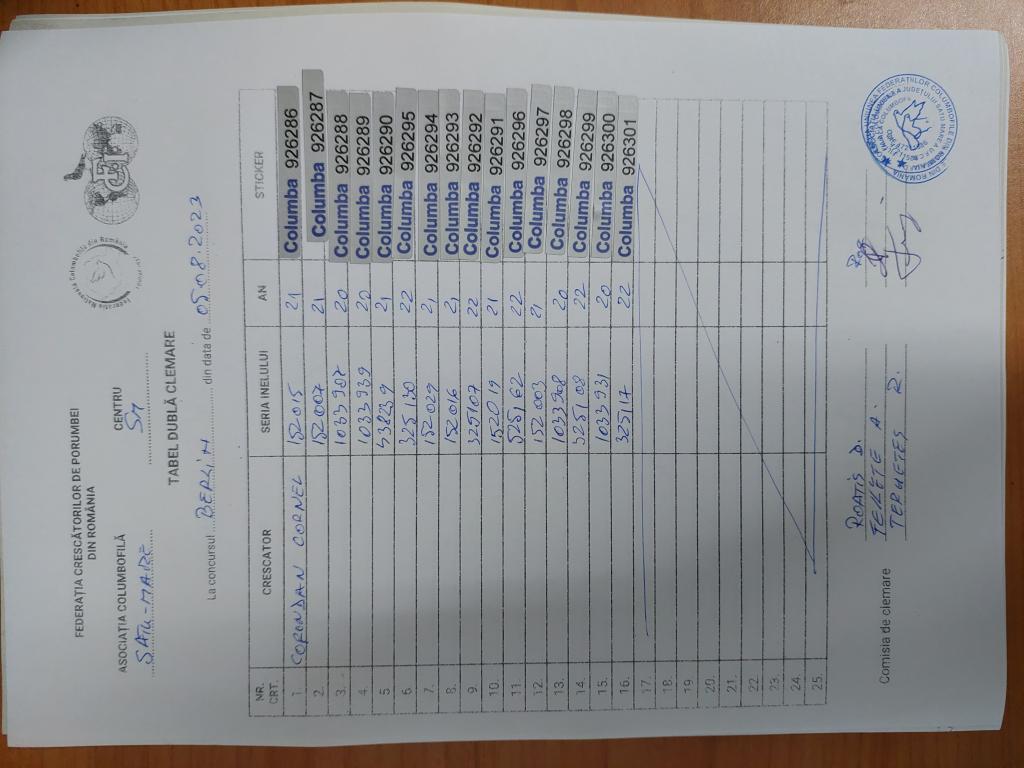 FEDERAȚIA CRESCĂTORILOR DE PORUMBEI
DIN ROMÂNIA
ASOCIAȚIA COLUMBOFILĂ CENTRU
SATU-MARE SM
TABEL DUBLĂ CLEMARE
La concursul BERLIN din data de 05.08.2023
NR. CRT. CRESCATOR SERIA INELULUI AN STICKER
1. CORONDAN CORNEL 152015 21 Columba 926286
2. 152007 21 Columba 926287
3. 1033907 20 Columba 926288
4. 1033939 20 Columba 926289
5. 538239 21 Columba 926290
6. 325130 22 Columba 926295
7. 152029 21 Columba 926294
8. 152016 21 Columba 926293
9. 325107 22 Columba 926292
10. 152019 21 Columba 926291
11. 325162 22 Columba 926296
12. 152003 21 Columba 926297
13. 1033908 20 Columba 926298
14. 325108 22 Columba 926299
15. 1033931 20 Columba 926300
16. 325117 22 Columba 926301
17.
18.
19.
20.
21.
22.
23.
24.
25.
Comisia de clemare
ROATIS D.
FEKETE A.
R.